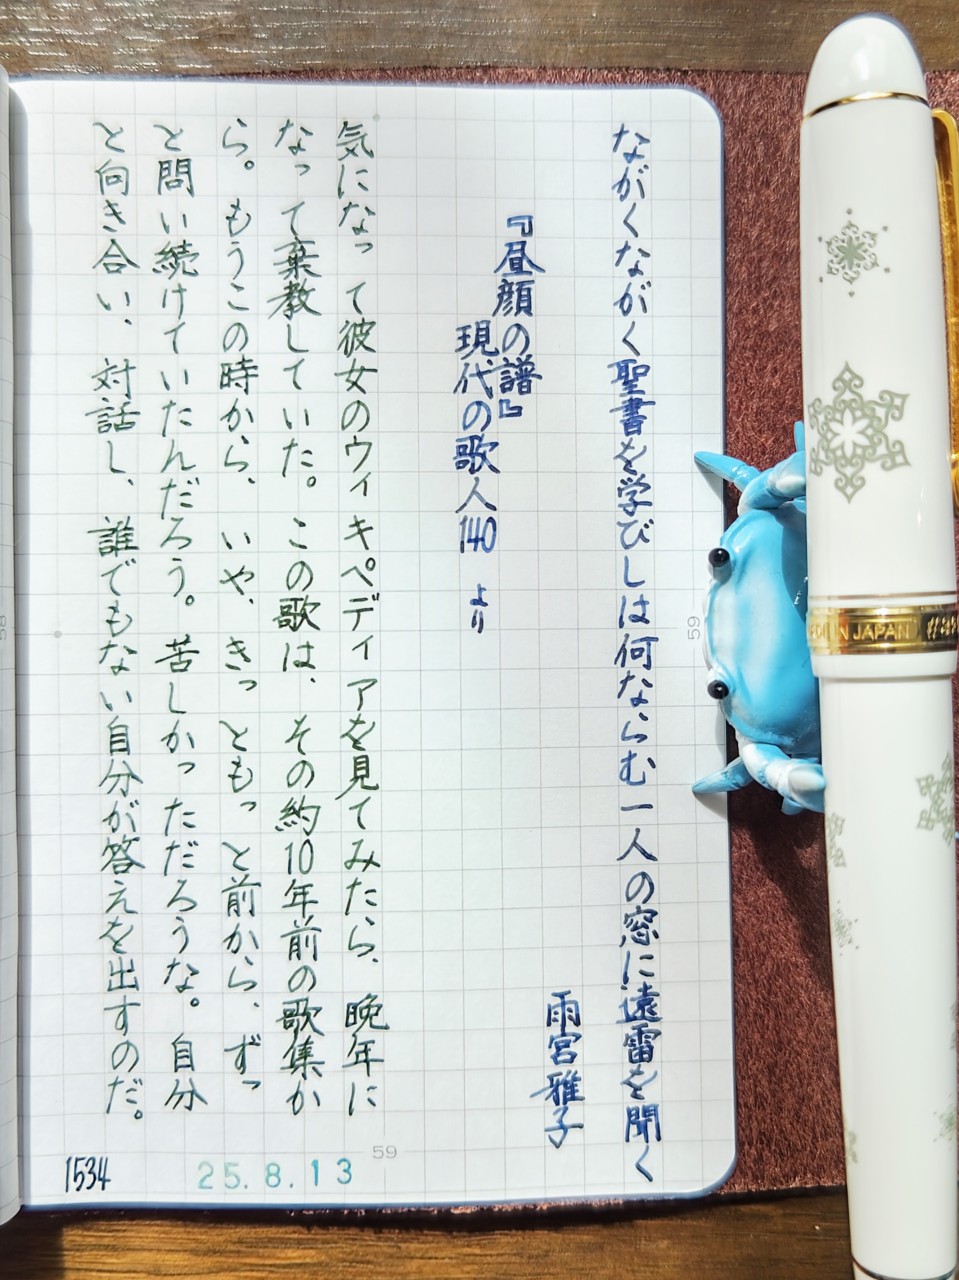 ながくながく聖書を学びしは何ならむ一人の窓に遠雷を聞く
雨宮雅子
『昼顔の譜』
現代の歌人140 より
気になって彼女のウィキペディアを見てみたら、晩年に
なって棄教していた。この歌は、その約10年前の歌集か
ら。もうこの時から、いや、きっともっと前から、ずっ
と問い続けていたんだろう。苦しかっただろうな。自分
と向き合い、対話し、誰でもない自分が答えを出すのだ。
1534
25.8.13
59
59
IN JAPAN